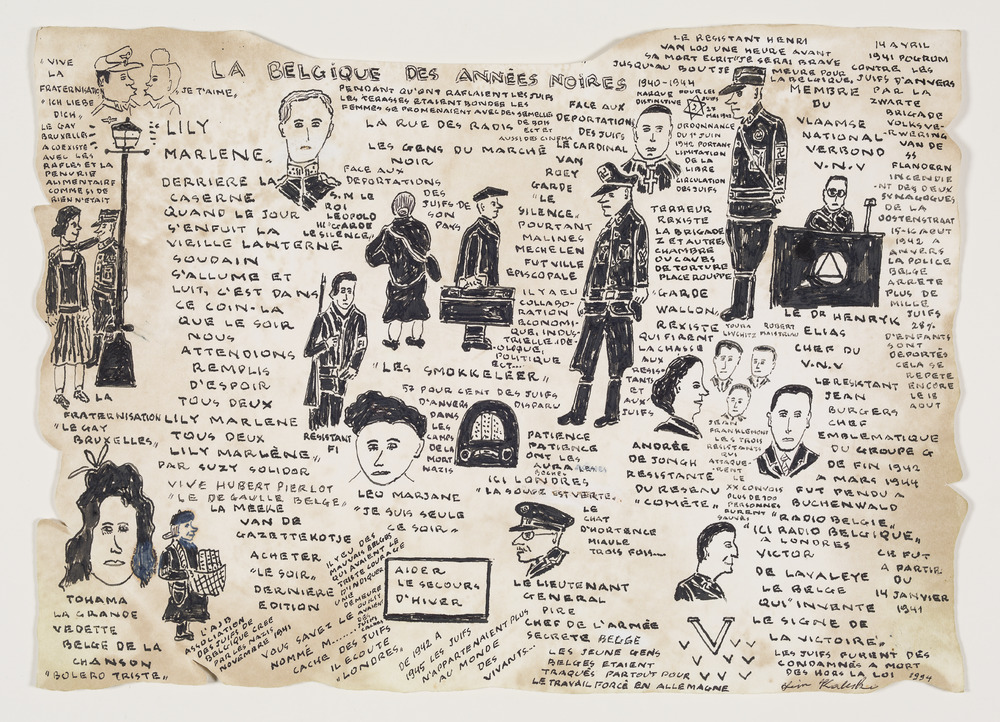 LA BELGIQUE DES ANNÉES NOIRES
"VIVE
LA
FRATERNISATION
"ICH LIEBE
DICH"
JE T'AIME,
LE GAY
BRUXELLES
A COEXISTÉ
AVEC LES
RAFLES ET LA
PENURIE
ALIMENTAIRE
COMME SI DE
RIEN N'ETAIT
LILY
MARLENE,
DERRIERE LA
CASERNE
QUAND LE JOUR
S'ENFUIT LA
VIEILLE LANTERNE
SOUDAIN
S'ALLUME ET
LUIT, C'EST DANS
CE COIN-LA
QUE LE SOIR
NOUS
ATTENDIONS
REMPLIS
D'ESPOIR
TOUS DEUX
LILY MARLENE
TOUS DEUX
LILY MARLÊNE,,
PAR SUZY SOLIDOR
LA
FRATERNISATION
"LE GAY
BRUXELLES,,
VIVE HUBERT PIERLOT
"LE DE GAULLE BELGE,,
LA MEEKE
VAN DE
GAZETTEKOTJE
ACHETER
"LE SOIR,,
DERNIERE
EDITION
TOHAMA
LA GRANDE
VEDETTE
BELGE DE LA
CHANSON
"BOLERO TRISTE"
L'AJB
ASSOCIATION
DES JUIFS DE
BELGIQUE CREE
PAR LES NAZIS
NOVEMBRE 1941
PENDANT QU'ON RAFLAIENT LES JUIFS
LES TERASSES ETAIENT BONDER LES
FEMMES SE PROMENAIENT AVEC DES SEMELLES
DE BOIS
ECT ET
AUSSI DES CINEMA
LA RUE DES RADIS
LES GENS DU MARCHÉ
NOIR
FACE AUX
DEPORTATIONS
DES
JUIFS DE
SON
PAYS
S.M LE
ROI
LEOPOLD
III "GARDE
LE SILENCE,,
"LES SMOKKELEER,,
57 POUR CENT DES JUIFS
D'ANVERS DISPARU
DANS
LES
CAMPS
DE LA
MORT
NAZIS
RESISTANT
FI
LEO MARJANE
"JE SUIS SEULE
CE SOIR"
PATIENCE
PATIENCE
ONT LES
AURA
BOCHES
ICI LONDRES
"LA SOUPE EST VERTE..
IL Y EU DES
MAUVAIS BELGES
QUI AVAIENT LE
TRISTE COURAGE
D'INDIQUER
UNE
DEMEURE
AIDER
LE SECOURS
D'HIVER
VOUS SAVEZ LE
NOMMÉ M.......
CACHE DES JUIFS
IL ECOUTE
"LONDRES,,
DE 1942 A
1945 LES JUIFS
N'APPARTENAIENT PLUS
AU MONDE
DES
VIVANTS...
FACE AUX
DEPORTATIONS
DES JUIFS
LE CARDINAL
VAN
ROEY
GARDE
"LE
SILENCE,,
POURTANT
MALINES
MECHELEN
FUT VILLE
EPISCOPALE
IL Y A EU
COLLABO-
RATION
ECONOMI-
QUE, INDUS-
TRIELLE, IDE-
OLOGUE,
POLITIQUE
ECT...
LE RESISTANT HENRI
VAN LOO UNE HEURE AVANT
SA MORT ECRIT "JE SERAI BRAVE
JUSQU'AU BOUT JE MEURE POUR
LA BELGIQUE,
1940-1944
MARQUE POUR LES
DISTINCTIVE JUIFS
J
27
MAI 1942
ORDONNANCE
DU 1ER JUIN
1942 PORTANT
LIMITATION
DE LA
LIBRE
CIRCULATION
DES JUIFS
TERREUR
REXISTE
LA BRIGADE
Z ET AUTRES
CHAMBRE
OU CAVES
DE TORTURE
PLACE ROUPPE
"GARDE
WALLON,,
REXISTE
QUI FIRENT
LA CHASSE
AUX
RESIS-
TANTS
ET
AUX
JUIFS
YOURA
LIVCHITZ
ROBERT
MAISTRIAU
JEAN
FRANKLEMON
LES TROIS
RESISTANTS
QUI
ATTAQUE-
RENT
LE
XX CONVOIS
PLUS DE 100
PERSONNES
FURENT
SAUVÉS
ANDRÉE
DE JONGH
RESISTANTE
DU RESEAU
"COMÈTE,,
LE
CHAT
D'HORTENCE
MIAULE
TROIS FOIS....
LE LIEUTENANT
GENERAL
PIRE
CHEF DE L'ARMÉE
SECRETE BELGE
LES JEUNE GENS
BELGES ETAIENT
TRAQUÉS PARTOUT POUR
LE TRAVAIL FORCÉ EN ALLEMAGNE
MEMBRE
DU
VLAAMSE
NATIONAL-
VERBOND
V.N.V
LE DR HENRYK
ELIAS
CHEF DU
V.N.V...
LE RESISTANT
JEAN
BURGERS
CHEF
EMBLEMATIQUE
DU GROUPE G
DE FIN 1942
A MARS 1944
FUT PENDU A
BUCHENWALD
"RADIO BELGIE,,
"ICI RADIO BELGIQUE,,
A LONDRES
VICTOR
DE LAVALEYE
LE BELGE
QUI INVENTE
LE SIGNE DE
LA VICTOIRE,,
CE FUT
A PARTIR
DU
14 JANVIER
1941
V
V V V V V V V V
LES JUIFS FURENT DES
CONDAMNÉS A MORT
DES HORS LA LOI
1994
14 AVRIL
1941 POGROM
CONTRE LES
JUIFS D'ANVERS
PAR LA
ZWARTE
BRIGADE
VOLKSVE-
RWERING
VAN DE
SS
FLANDERN
INCENDIE
NT DES DEUX
SYNAGOGUES
DE LA
OOSTENSTRAAT
15-16 AOUT
1942 A
ANVERS
LA POLICE
BELGE
ARRETE
PLUS DE
MILLE
JUIFS
28%
D'ENFANTS
SONT
DEPORTÉS
CELA SE
REPETE
ENCORE
LE 18
AOUT